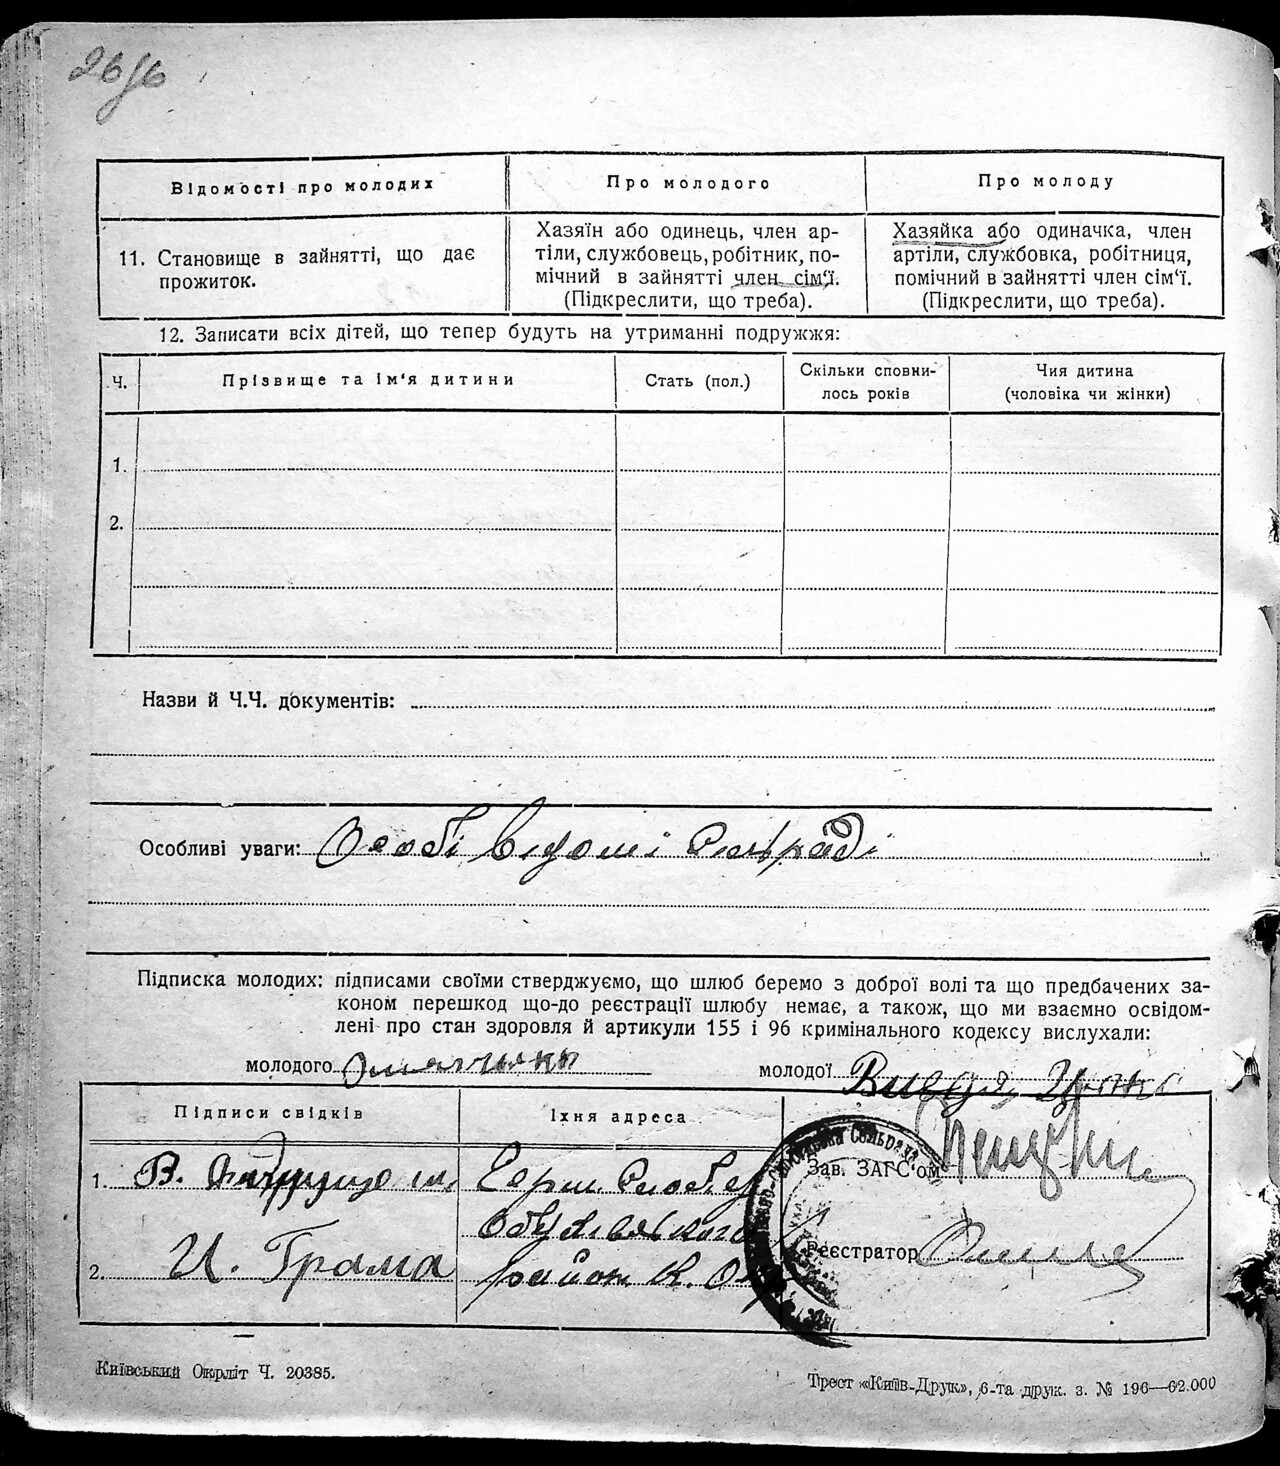 Відомості про молодих
Про молодого
Про молоду
11. Становище в зайнятті, що дає
прожиток.
Хазяїн або одинець, член ар-
тіли, службовець, робітник, по-
мічний в зайнятті член сім'ї.
(Підкреслити, що треба).
Хазяйка або одиначка, член
артіли, службовка, робітниця,
помічний в зайнятті член сім'ї.
(Підкреслити, що треба).
12. Записати всіх дітей, що тепер будуть на утриманні подружжя:
Ч.
Прізвище та ім'я дитини
Стать (пол.)
Скільки сповни-
лось років
Чия дитина
(чоловіка чи жінки)
1.
2.
Назви й Ч.Ч. документів:
Особливі уваги: Особі відомі Сельраді
Підписка молодих: підписами своїми стверджуємо, що шлюб беремо з доброї волі та що предбачених за-
коном перешкод що-до реєстрації шлюбу немає, а також, що ми взаємно освідом-
лені про стан здоров'я й артикули 155 і 96 кримінального кодексу вислухали:
молодого
молодої
Підписи свідків
Їхня адреса
Зав. ЗАГС'ом
1. В.
2. И. Грама
район К.
Реєстратор
Київський Окрліт Ч. 20385.
Трест «Київ-Друк», 6-та друк. з. № 196—62.000